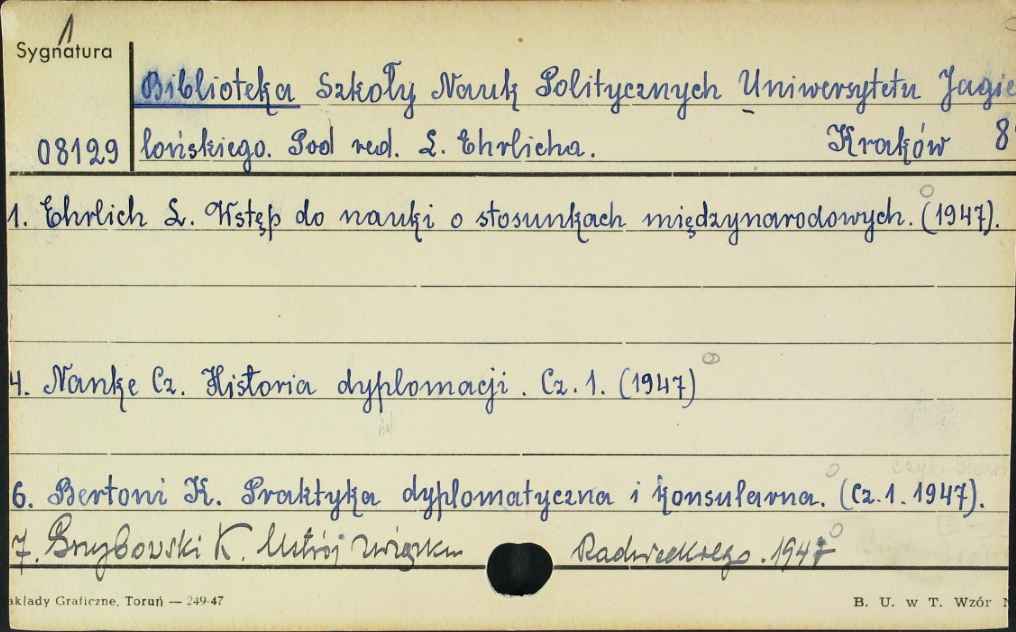 1
Sygnatura
Biblioteka Szkoły Nauk Politycznych Uniwersytetu Jagie
08129 lońskiego. Pod red. L. Ehrlicha. Kraków 8°
1. Ehrlich L. Wstęp do nauki o stosunkach międzynarodowych. (1947).
4. Nanke Cz. Historia dyplomacji. Cz. 1. (1947)
6. Bertoni K. Praktyka dyplomatyczna i konsularna. (Cz. 1. 1947).
7. Grzybowski K. Ustrój Związku Radzieckiego. 1947
akłady Graficzne, Toruń — 249-47
B. U. w T. Wzór